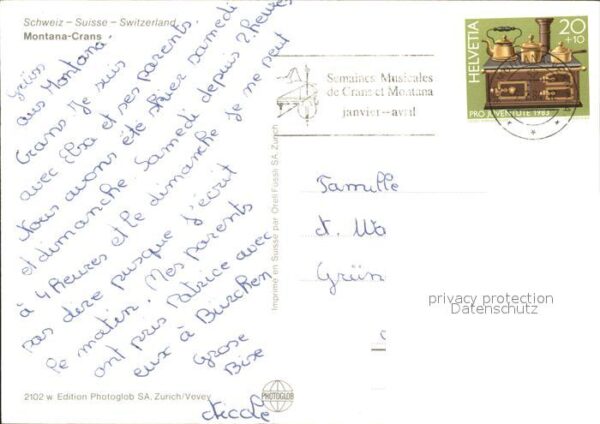 Schweiz – Suisse – Switzerland
Montana-Crans
Grüss
aus Montana-
Crans. Je suis
avec Elsa et ses parents.
Nous avons été skier samedi
et dimanche. Samedi depuis 2 heures
à 4 heures et le dimanche je ne peut
pas dire pusque j'écrit
le matin. Mes parents
ont pris Patrice avec
eux à Bürchen
Grose
Bise
Nicole
2102 w Edition Photoglob SA, Zurich/Vevey
PHOTOGLOB
Imprimé en Suisse par Orell Füssli SA Zurich
Semaines Musicales
de Crans et Montana
janvier – avril
HELVETIA
20
+10
PRO JUVENTUTE 1983
Familie
Grün
privacy protection
Datenschutz